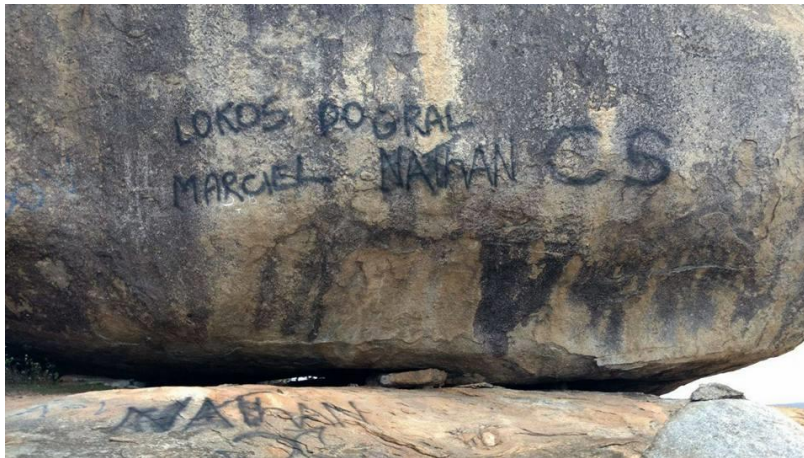 LOKOS DOGRAL
MARCIEL NATHAN CS
NATHAN